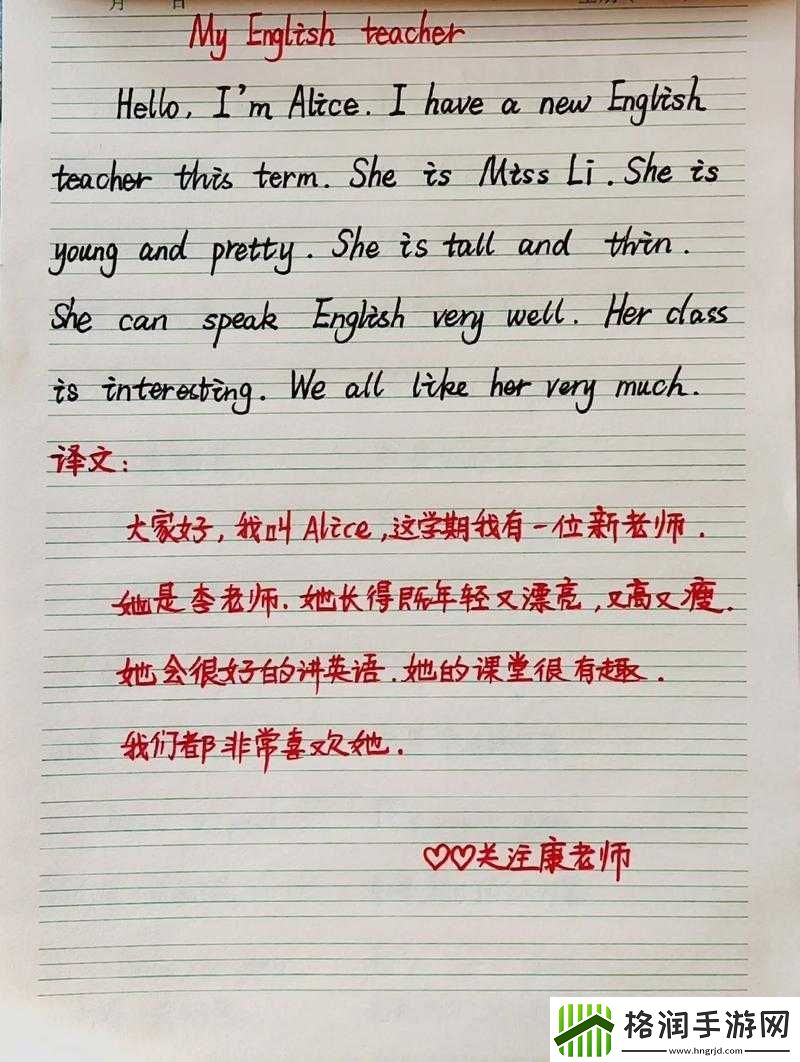 月 日
My English teacher
Hello, I'm Alice. I have a new English
teacher this term. She is Miss Li. She is
young and pretty. She is tall and thin.
She can speak English very well. Her class
is interesting. We all like her very much.
译文:
大家好,我叫Alice,这学期我有一位新老师.
她是李老师.她长得既年轻又漂亮,又高又瘦.
她会很好的讲英语.她的课堂很有趣.
我们都非常喜欢她.
♡♡关注康老师
格润手游网
www.hngrjd.com